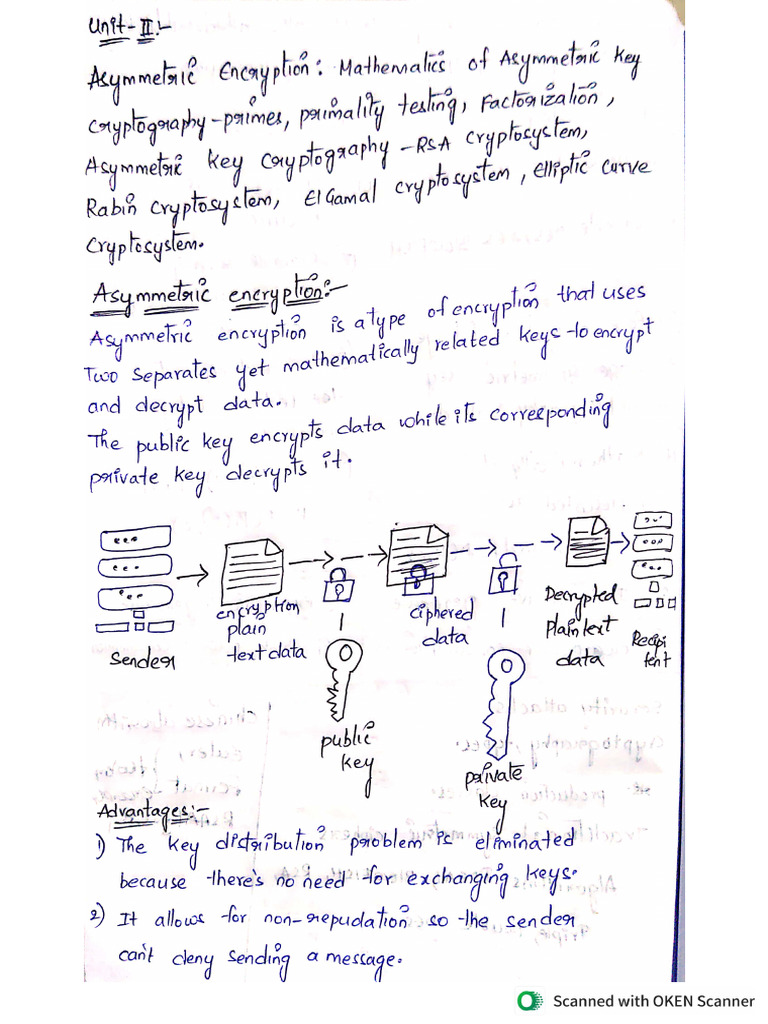 Unit-II:-
Asymmetric Encryption: Mathematics of Asymmetric Key
cryptography-primes, primality testing, Factorization,
Asymmetric key cryptography -RSA cryptosystem,
Rabin cryptosystem, ElGamal cryptosystem, Elliptic curve
cryptosystem.
Asymmetric encryption:-
Asymmetric encryption is a type of encryption that uses
Two separates yet mathematically related keys to encrypt
and decrypt data.
The public key encrypts data while its corresponding
private key decrypts it.
Sender
encryption
plain
text data
public
key
ciphered
data
private
key
Decrypted
Plain text
data
Recipi
tent
Advantages:-
1) The key distribution problem is eliminated
because there's no need for exchanging keys.
2) It allows for non-repudation so the sender
can't deny sending a message.
Scanned with OKEN Scanner